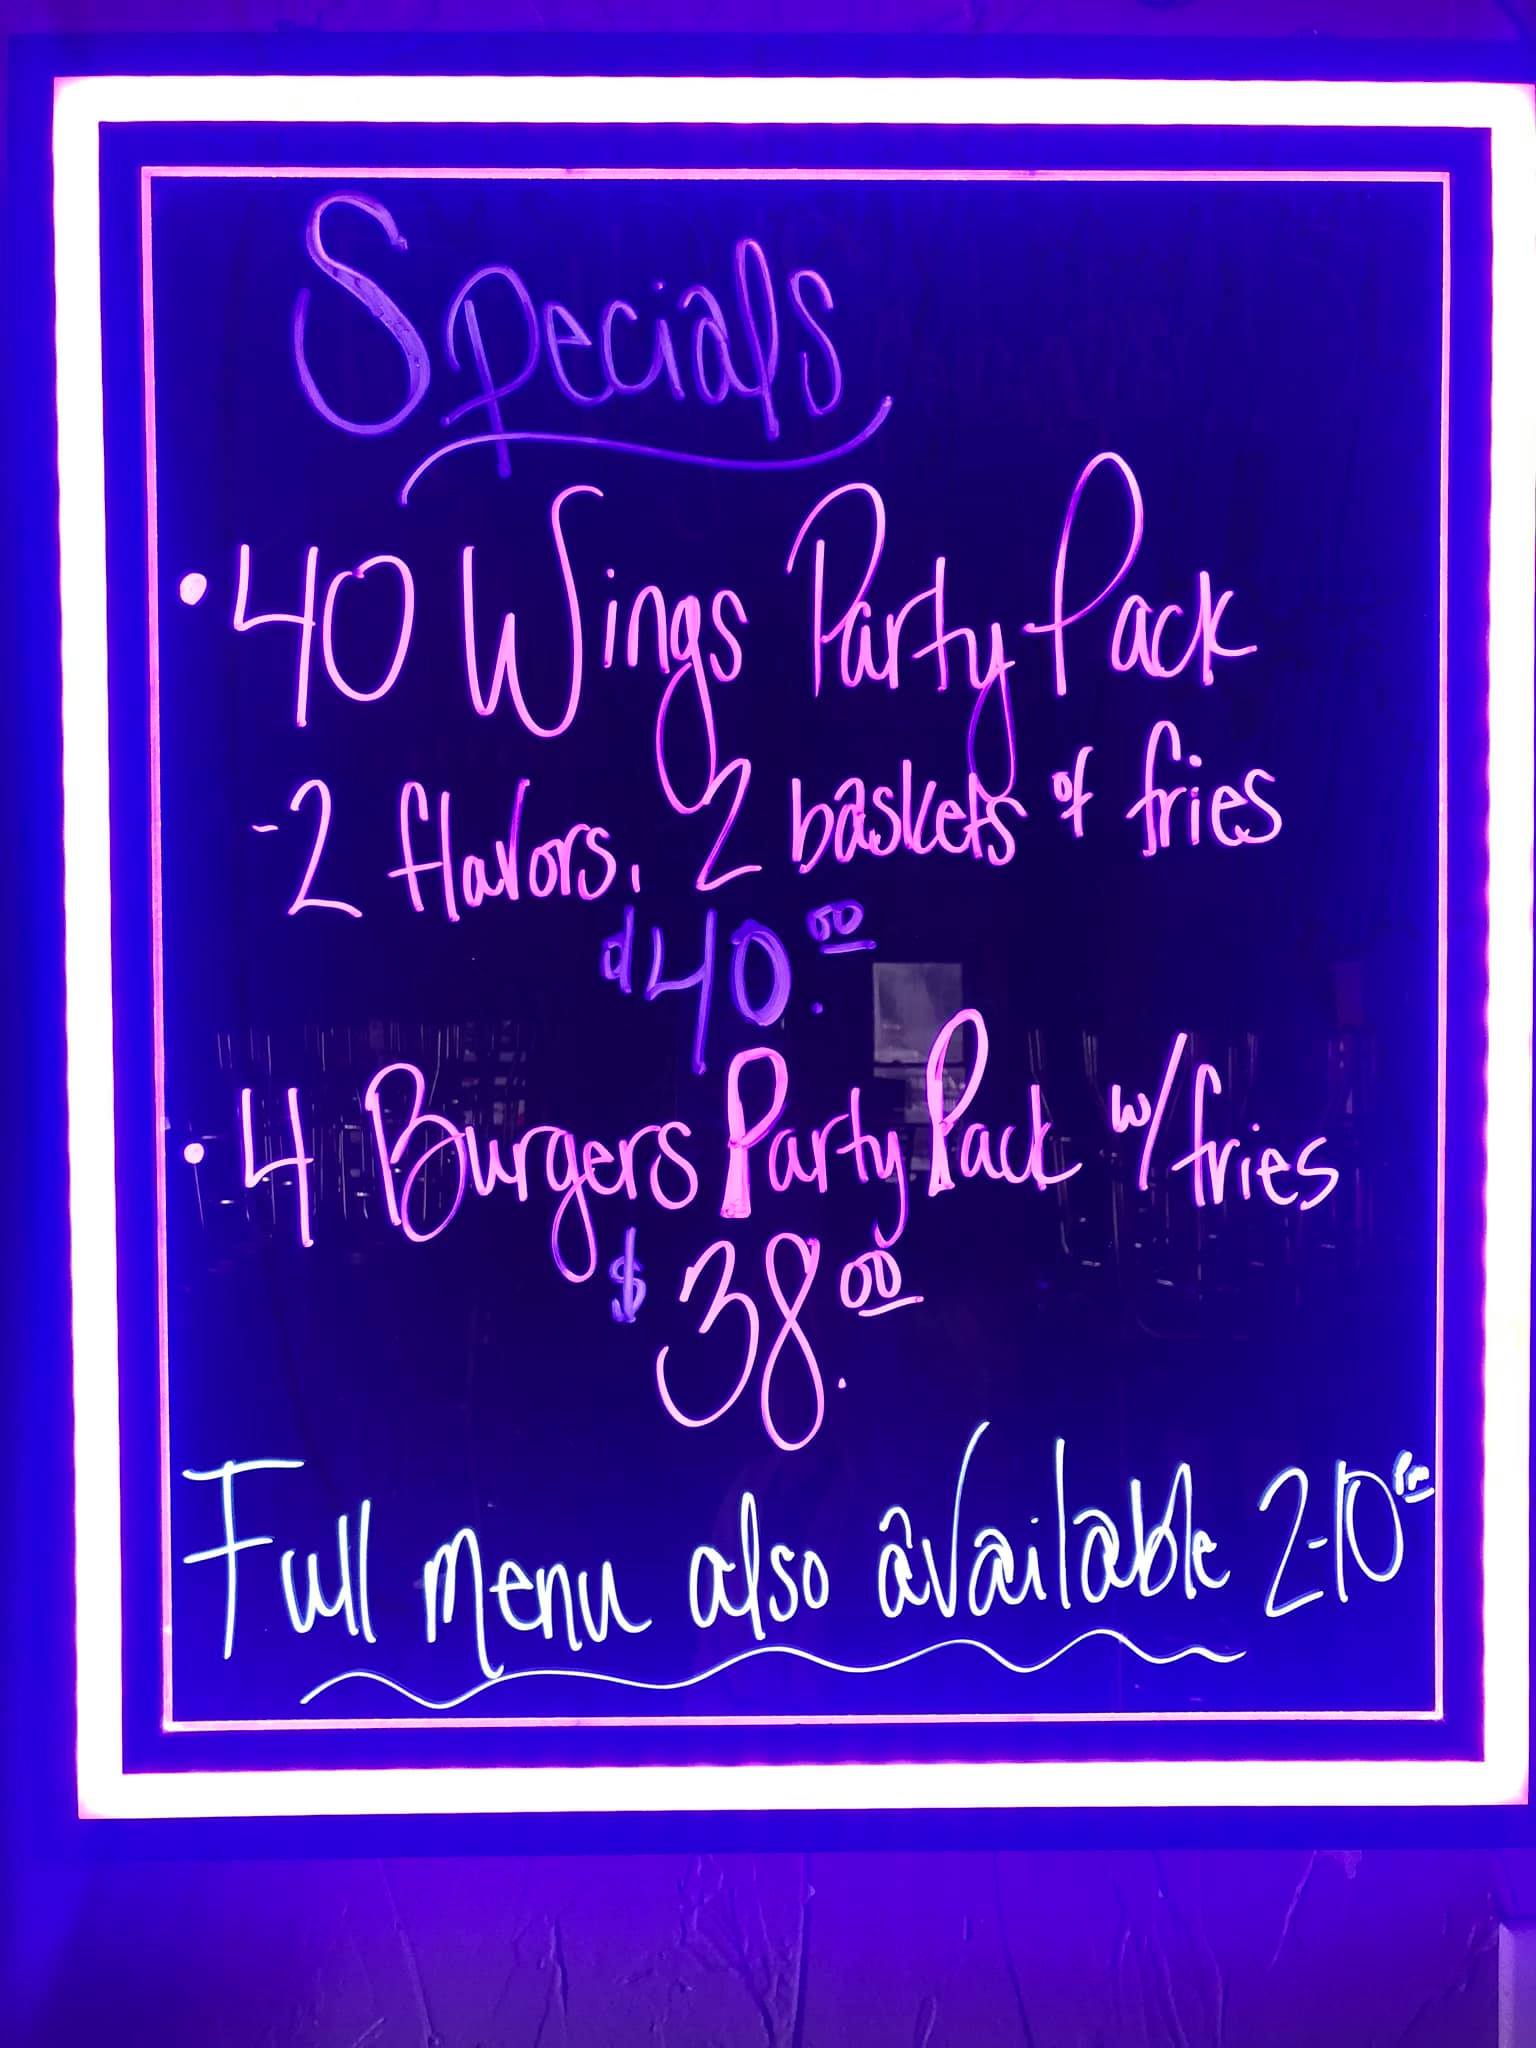 Specials
• 40 Wings Party Pack
- 2 flavors, 2 baskets of fries
$40.00
• 4 Burgers Party Pack w/fries
$38.00
Full menu also available 2-10pm